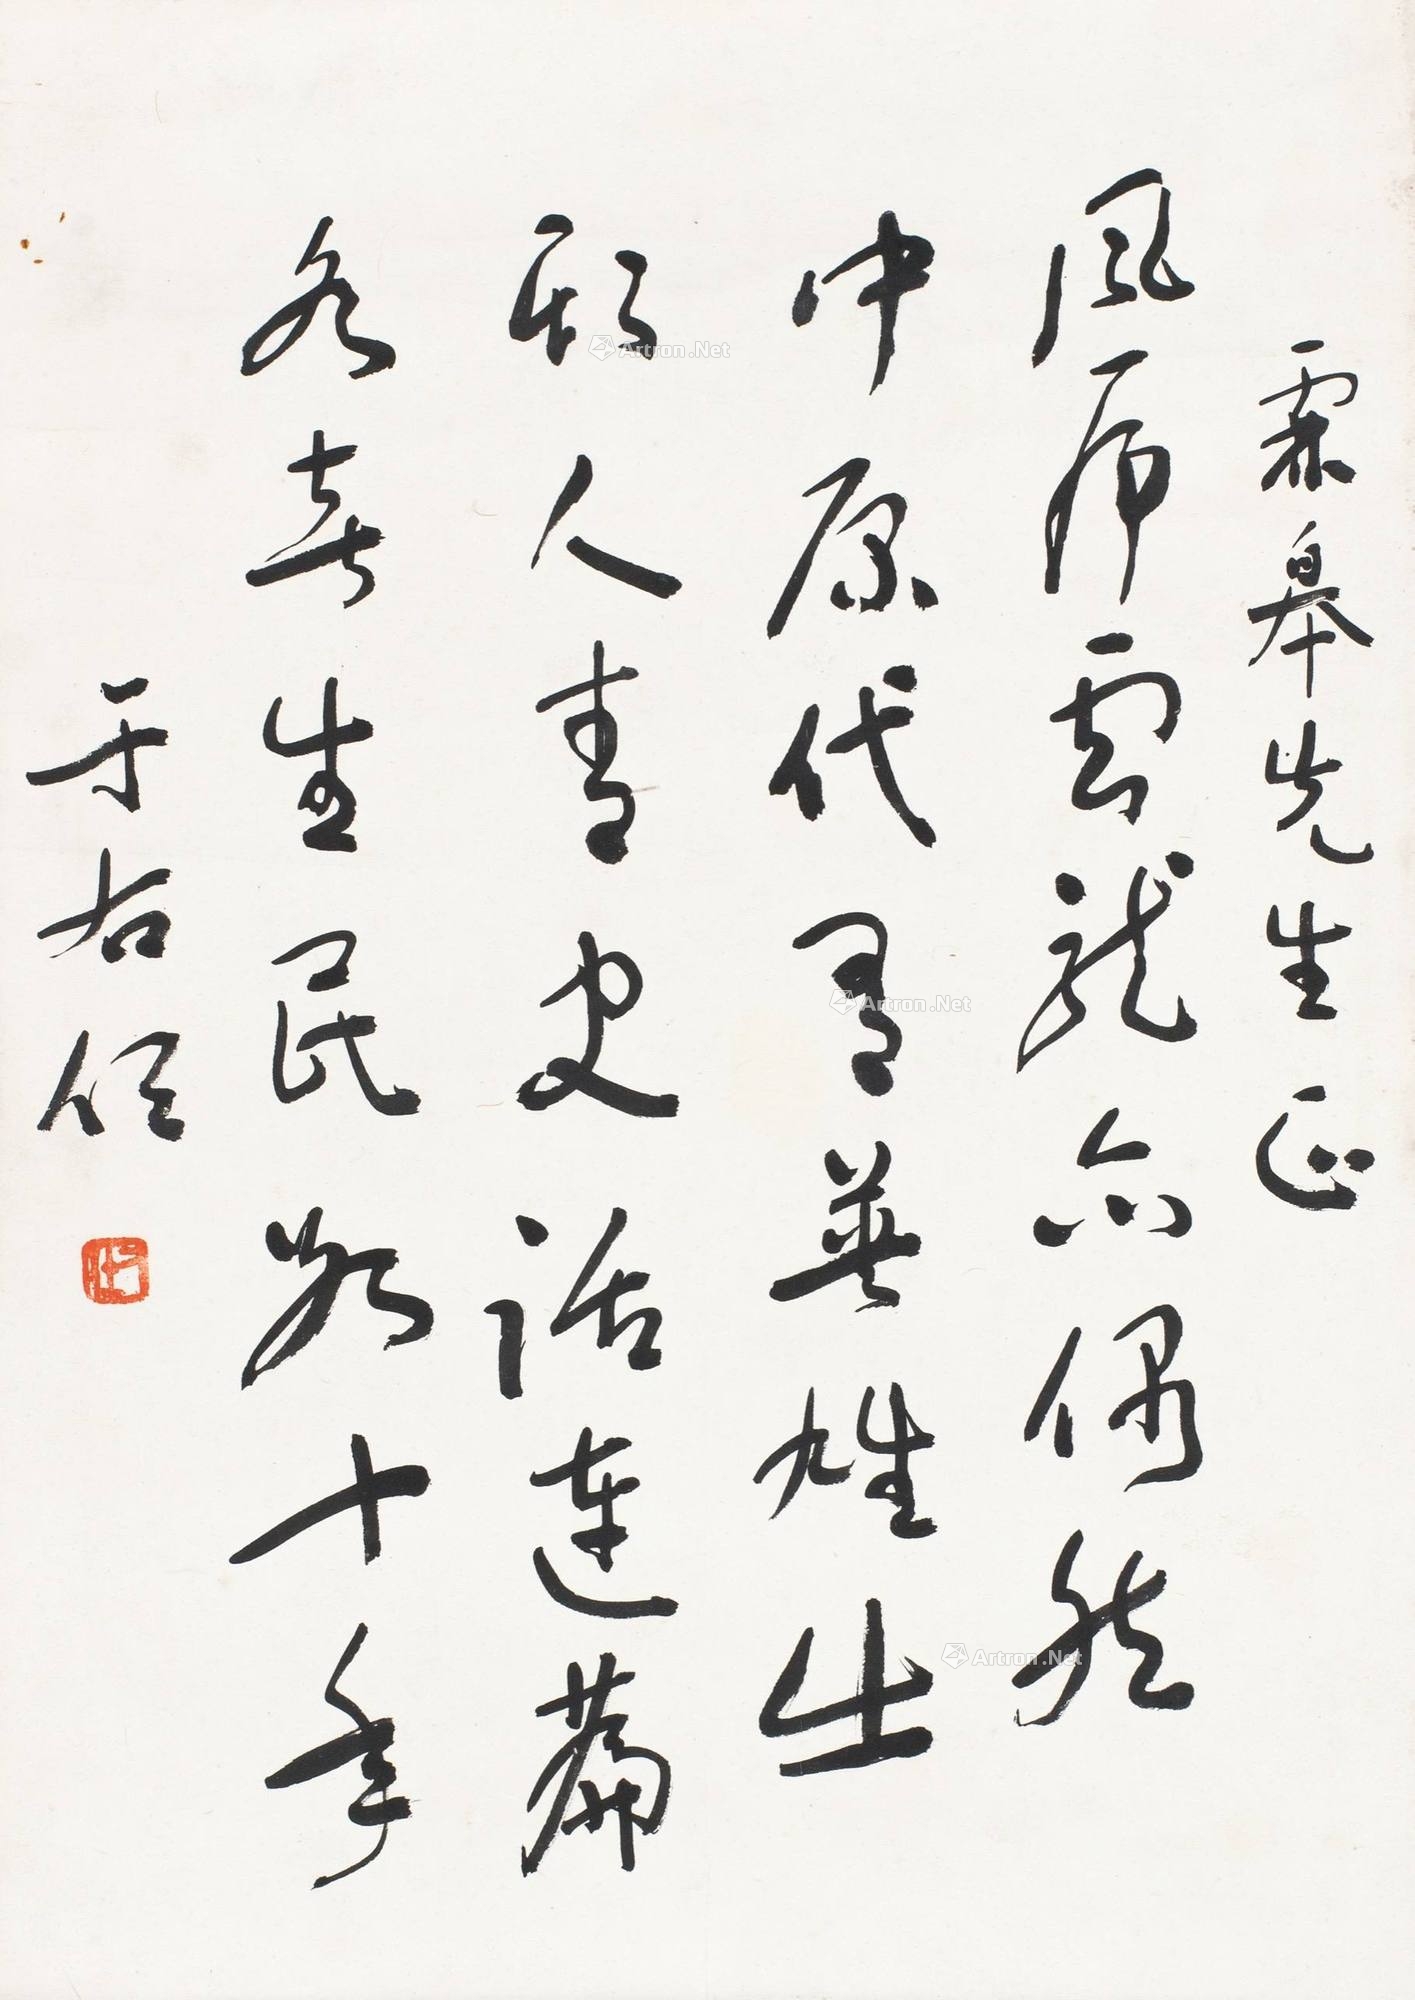 霖皋先生正
风虎云龙亦偶然
中原代有英雄出
欺人青史话连篇
各苦生民数十年
于右任
Artron.Net
Artron.Net
Artron.Net